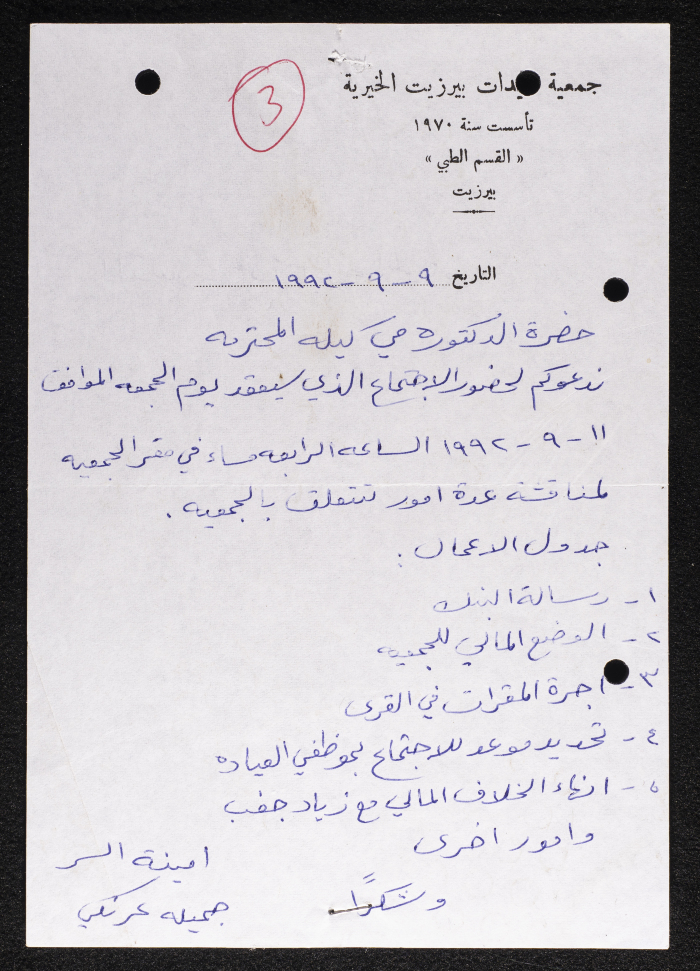 جمعية سيدات بيرزيت الخيرية
3
تأسست سنة ١٩٧٠
« القسم الطبي »
بيرزيت
التاريخ ٩ - ٩ - ١٩٩٢
حضرة الدكتورة مي كيله المحترمه
ندعوكم لحضور الاجتماع الذي سيعقد يوم الجمعه الموافق
١١ - ٩ - ١٩٩٢ الساعه الرابعه مساء في مقر الجمعيه
لمناقشة عدة امور تتعلق بالجمعيه .
جدول الاعمال :
١ - رسالة البنك
٢ - الوضع المالي للجمعيه
٣ - اجرة المقرات في القرى
٤ - تحديد موعد للاجتماع بموظفي العياده
٥ - انهاء الخلاف المالي مع زياد
وامور اخرى
امينة السر
وشكرًا
جميله